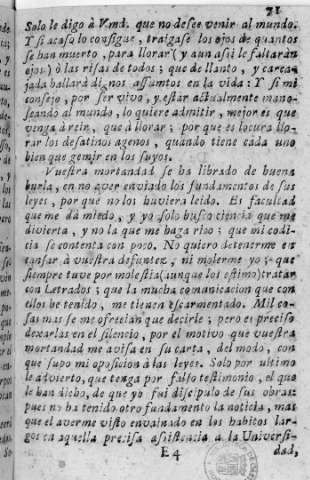 71
Solo le digo à V.md. que no desee venir al mundo.
Y si acaso lo consigue, traigase los ojos de quantos
se han muerto, para llorar (y aun assi le faltaràn
ojos) ò las risas de todos; que de llanto, y carca-
jada hallarà dignos assumtos en la vida: Y si mi
consejo, por ser vivo, y estar actualmente mano-
seando al mundo, lo quiere admitir, mejor es que
venga à reir, que à llorar; por que es locura llo-
rar los desatinos agenos, quando tiene cada uno
bien que gemir en los suyos.
Vuestra mortandad se ha librado de buena
burla, en no aver enviado los fundamentos de sus
leyes, por que no los huviera leido. Es facultad
que me dà miedo, y yo solo busco ciencia que me
divierta, y no la que me haga rico; que mi codi-
cia se contenta con poco. No quiero detenerme en
cansar à vuestra defuntez, ni molerme yo; que
siempre tuve por molestia (aunque los estimo) tratar
con Letrados; que la mucha comunicacion que con
ellos he tenido, me tienen escarmentado. Mil co-
sas mas se me ofrecian que decirle; pero es preciso
dexarlas en el silencio, por el motivo que vuestra
mortandad me avisa en su carta, del modo, con
que supo mi oposicion à las leyes. Solo por ultimo
le advierto, que tenga por falso testimonio, el que
le han dicho, de que yo fui discipulo de sus obras:
pues no ha tenido otro fundamento la noticia, mas
que el averme visto envainado en los habitos lar-
gos en aquella precisa assistencia a la Universi-
E4 dad,